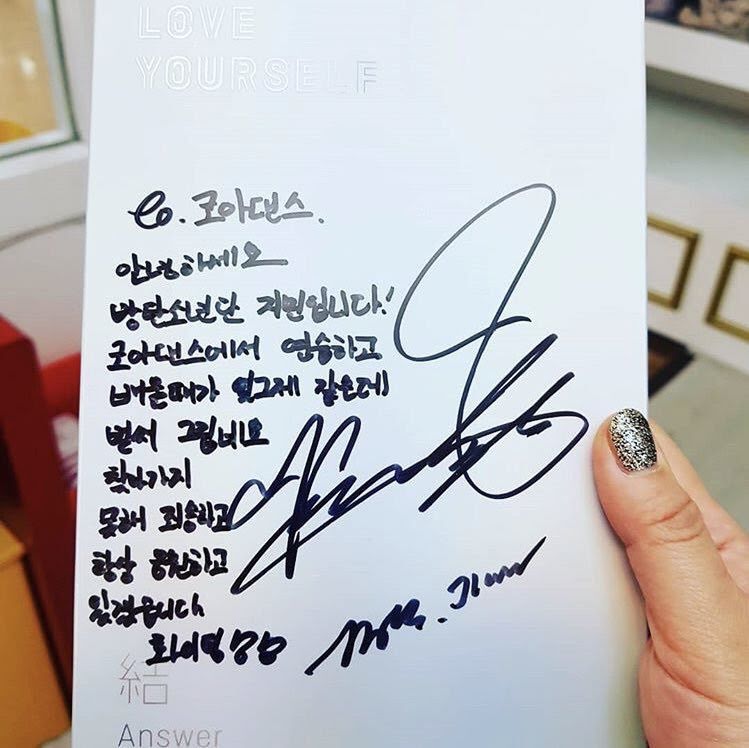 LOVE
YOURSELF
to. 코아댄스.
안녕하세요
방탄소년단 지민입니다!
코아댄스에서 연습하고
배울때가 엊그제 같은데
벌써 그립네요
찾아가지
못해 죄송하고
항상 응원하고
있겠습니다
화이팅
BTS. Jimin
結
Answer